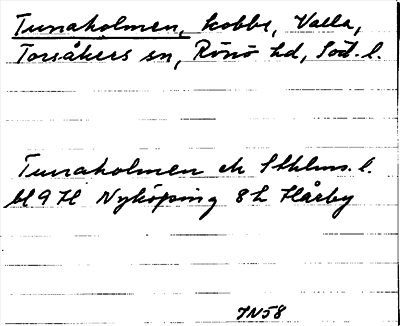 Tunaholmen, kobbe, Valla,
Torsåkers sn, Rönö hd, Söd. l.
Tunaholmen ek Sthlms. l.
bl 9 H Nyköping 8h Hårby
JN58